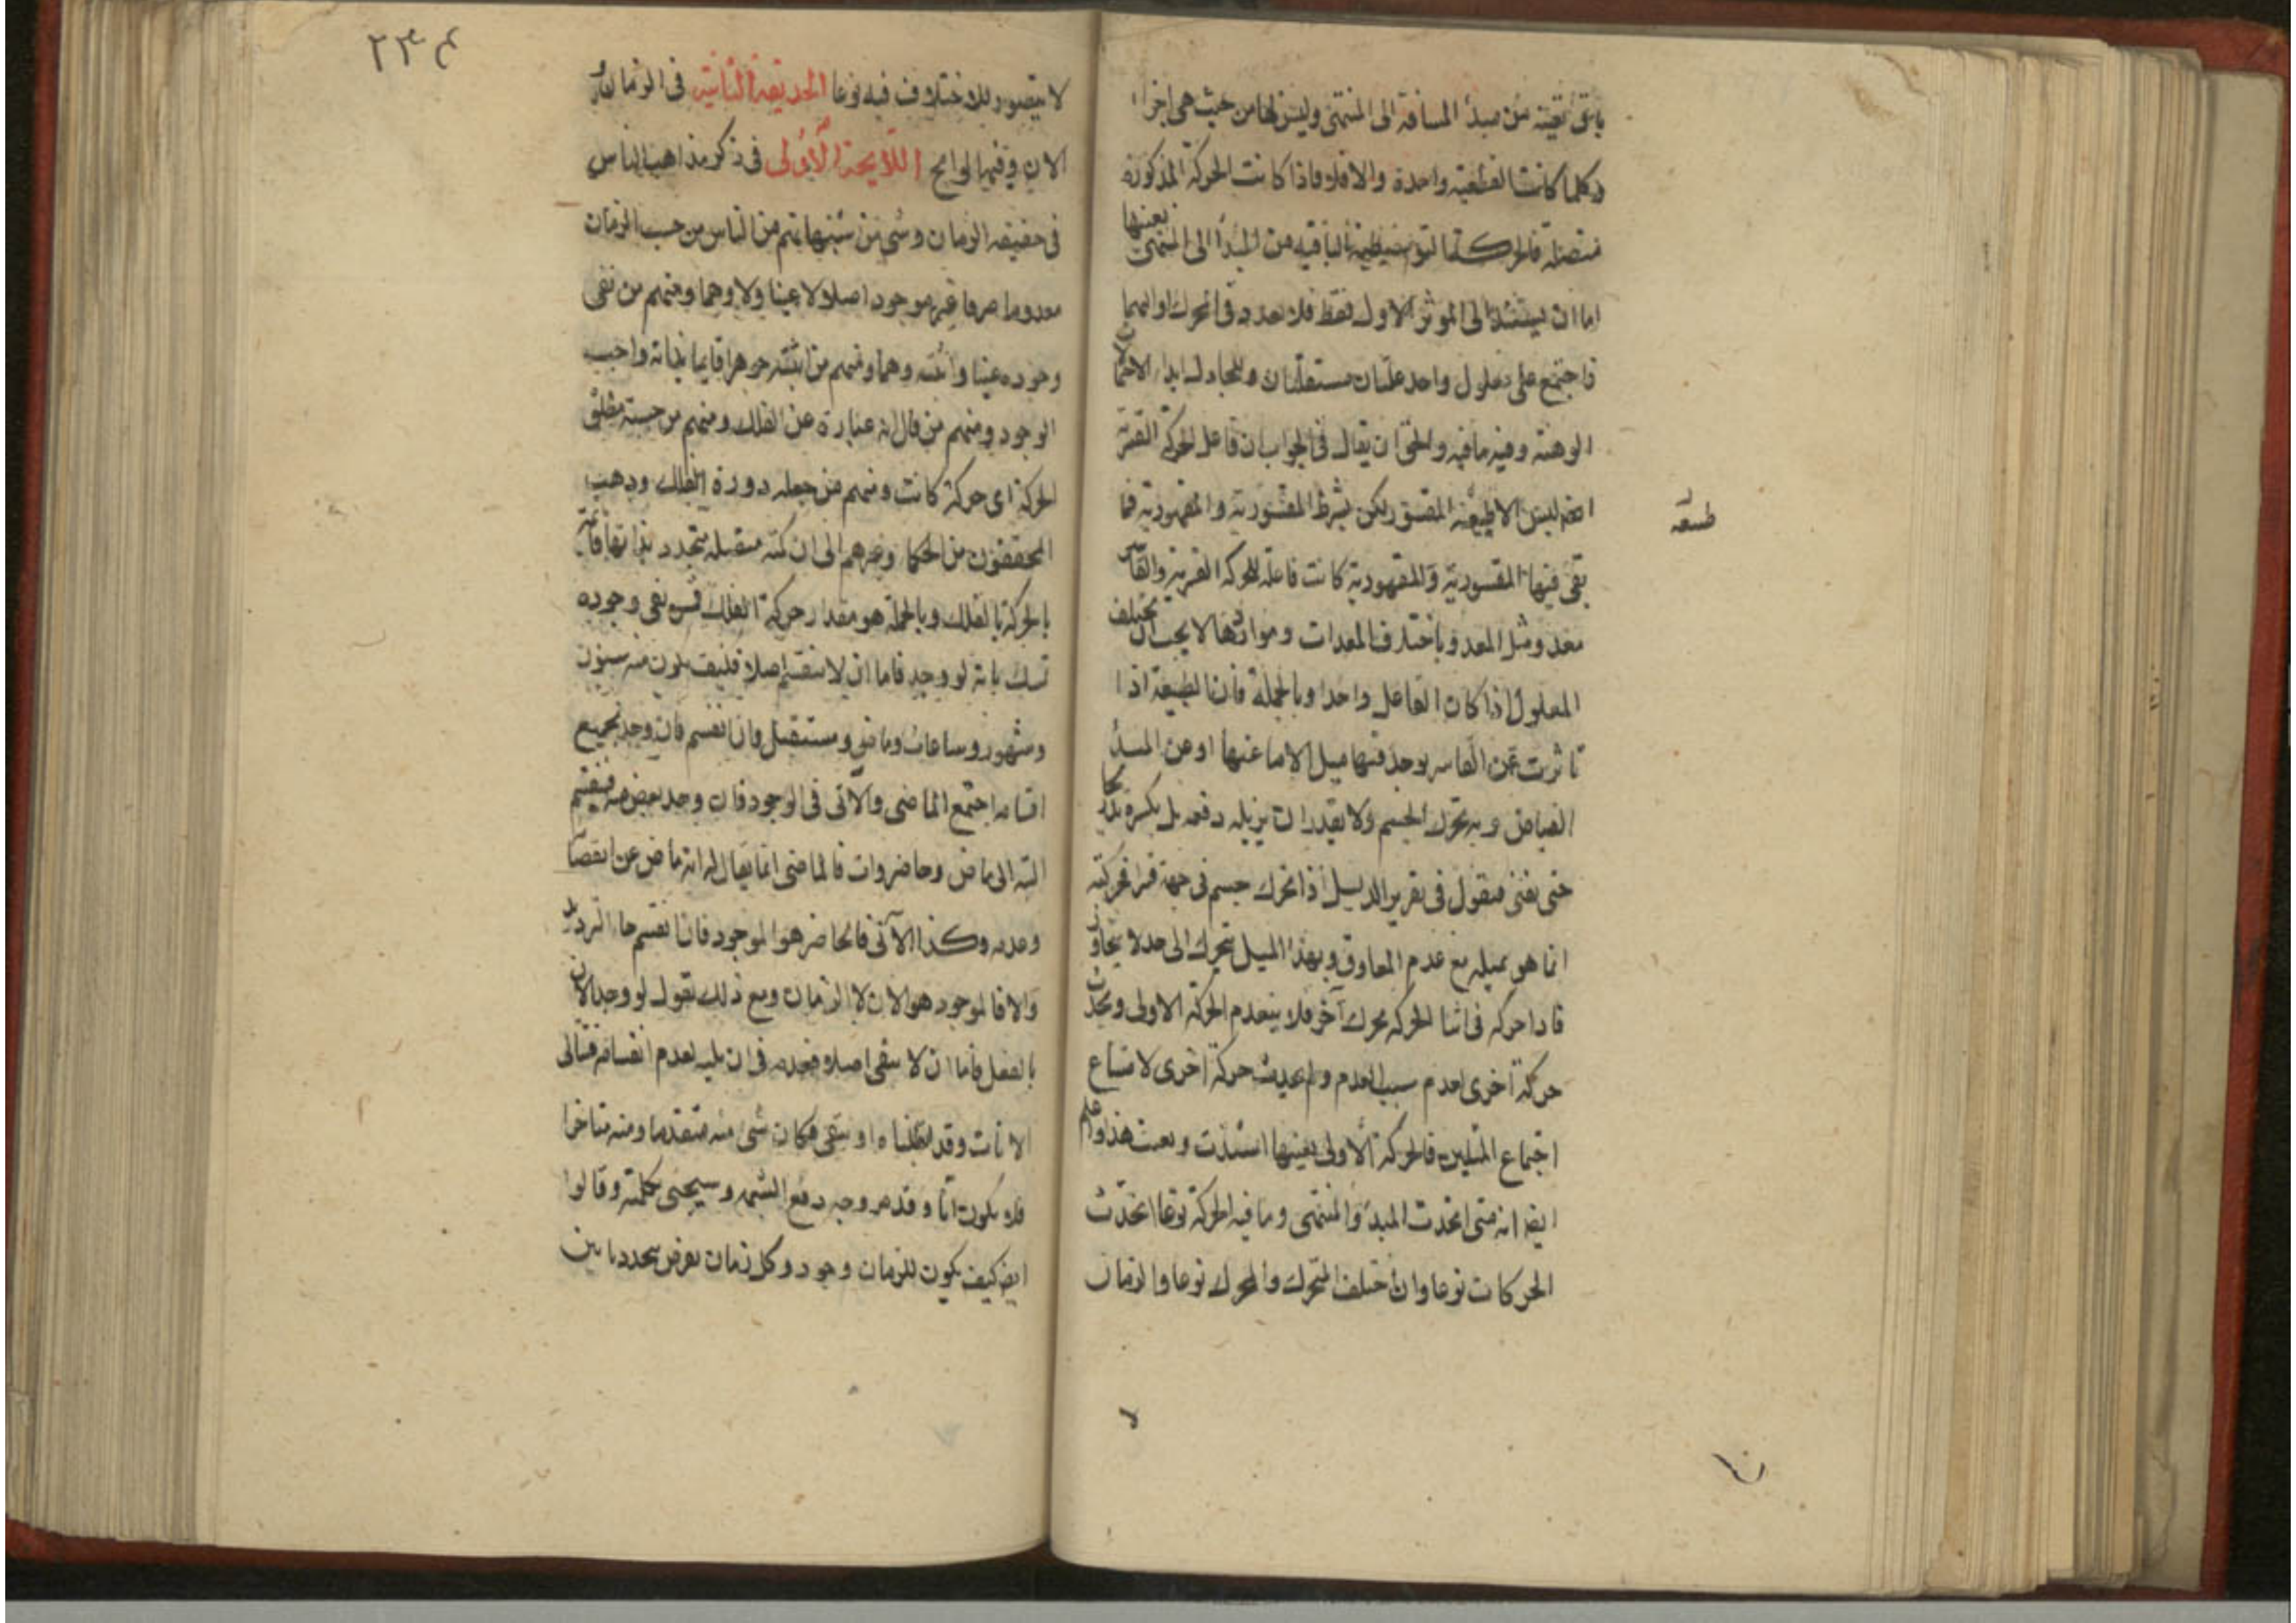 باق بعينه من مبدأ المسافة الى المنتهى وليس لها من حيث هى اجزاء
وكلما كانت القطعية واحدة والا فلا فاذا كانت الحركة المذكورة
متصلة فالحركة التوسطية الباقية من المبدأ الى المنتهى بعينها
اما ان يستند الى الموثر الاول فقط فلا تعدد فى المحرك او اليهما
فاجتمع على معلول واحد علتان مستقلتان وللمجادل ابداء الاحتمالات
الوهنة وفيه ما فيه والحق ان يقال فى الجواب ان فاعل الحركة القسرية
انهم ليس الا طبيعة المقسور لكن بشرط المقسورية والمقهورية فما
طبيعة
بقى فيها المقسورية والمقهورية كانت فاعلة للحركة القسرية والقاسر
معد ومثل المعد وباختلاف المعدات ومواردها لا يجب ان يختلف
المعلول اذا كان الفاعل واحدا وبالجملة فان الطبيعة اذا
تاثرت عن القاسر يوجد فيها ميل الاما عنها او عن المبدأ
الفياض وبه تحرك الجسم ولا يقدر ان يزيله دفعة بل يكسره
حتى يفنى فنقول فى تقرير الدليل اذا تحرك جسم فى جهة قسرا فحركته
انما هو بميله مع عدم المعاوق وبهذا الميل تحرك الى حد لا يتجاوز
فاذا حركه فى اثنا الحركة محرك آخر فلا ينعدم الحركة الاولى ويحدث
حركة اخرى لعدم سبب العدم ولم يحدث حركة اخرى لامتناع
اجتماع المثلين فالحركة الاولى بعينها اشتدت وبعث هذا واعلم
ايضا انه متى اتحدت المبدأ والمنتهى وما فيه الحركة نوعا اتحدت
الحركات نوعا وان اختلف المتحرك والمحرك نوعا والزمان
لا
٢٣٤
لا يتصور للاختلاف فيه نوعا الحديقة الثانية فى الزمان و
الان وفيها لوايح اللايحة الاولى فى ذكر مذاهب الناس
فى حقيقه الزمان وشى من شبهاتهم من الناس من حسب الزمان
معدوما صرفا غير موجود اصلا لا عينا ولا وهما ومنهم من نفى
وجوده عينا واثبته وهما ومنهم من اثبته جوهرا قايما بذاته واجب
الوجود ومنهم من قال انه عبارة عن الفلك ومنهم من حسبه مطلق
الحركة اى حركة كانت ومنهم من جعله دورة الفلك وذهب
المحققون من الحكما وغيرهم الى ان كنه متصلة متجدد بذاتها قائمة
بالحركة بالفلك وبالجملة هو مقدار حركة الفلك فمن نفى وجوده
تمسك بانه لو وجد فاما ان لا ينقسم اصلا فكيف يكون منه سنون
وشهور وساعات وماض ومستقبل وان انقسم فان وجد بجميع
اقسامه اجتمع الماضى والآتى فى الوجود فان وجد بعض منه فينقسم
البته الى ماض وحاضر وات فالماضى انما يقال له انه ماض عن انقضا
وعدمه وكذا الآتى فالحاضر هو الموجود فان انقسم جاء الترديد
والا فالموجود هو الان لا الزمان ومع ذلك نقول لو وجد الان
بالفعل فاما ان لا يبقى اصلا فعدمه فى ان يليه لعدم انقسامه فتتالى
الانات وقد ابطلناه او يبقى فكان شى منه متقدما ومنه متاخرا
فلا يكون انا وقد مر وجه دفع الشبهه وسيجى تكملته وقالوا
ايضا كيف يكون للزمان وجود وكل زمان يعرض يتحدد بانين